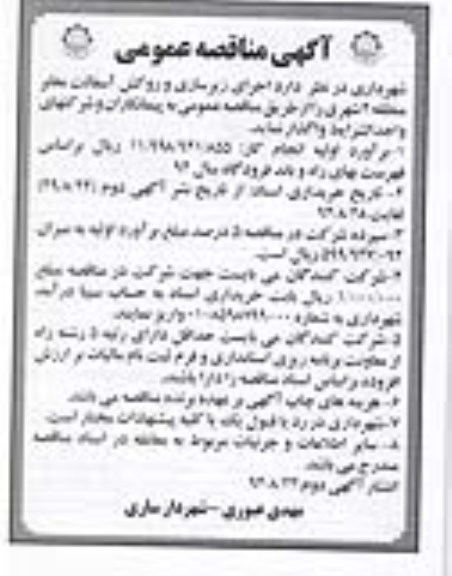 آگهی مناقصه عمومی
شهرداری در نظر دارد اجرای زیرسازی و روکش آسفالت معابر
منطقه ۲ شهری را از طریق مناقصه عمومی به پیمانکاران و شرکتهای
واجد الشرایط واگذار نماید.
۱- برآورد اولیه انجام کار: ۱۱/۹۹۸/۹۲۱/۸۵۵ ریال براساس
فهرست بهای راه و باند فرودگاه سال ۹۲
۲- تاریخ خریداری اسناد: از تاریخ نشر آگهی دوم
لغایت
۳- سپرده شرکت در مناقصه ۵ درصد مبلغ برآورد اولیه به میزان
ریال است.
۴- شرکت کنندگان می بایست جهت شرکت در مناقصه مبلغ
ریال بابت خریداری اسناد به حساب سیبا درآمد
شهرداری به شماره واریز نمایند.
۵- شرکت کنندگان می بایست حداقل دارای رتبه ۵ رشته راه
از معاونت برنامه ریزی استانداری و فرم ثبت نام مالیات بر ارزش
افزوده براساس اسناد مناقصه را دارا باشند.
۶- هزینه های چاپ آگهی بر عهده برنده مناقصه می باشد.
۷- شهرداری در رد یا قبول یک یا کلیه پیشنهادات مختار است.
۸- سایر اطلاعات و جزئیات مربوط به معامله در اسناد مناقصه
مندرج می باشد.
انتشار آگهی دوم
مهدی عبوری - شهردار ساری